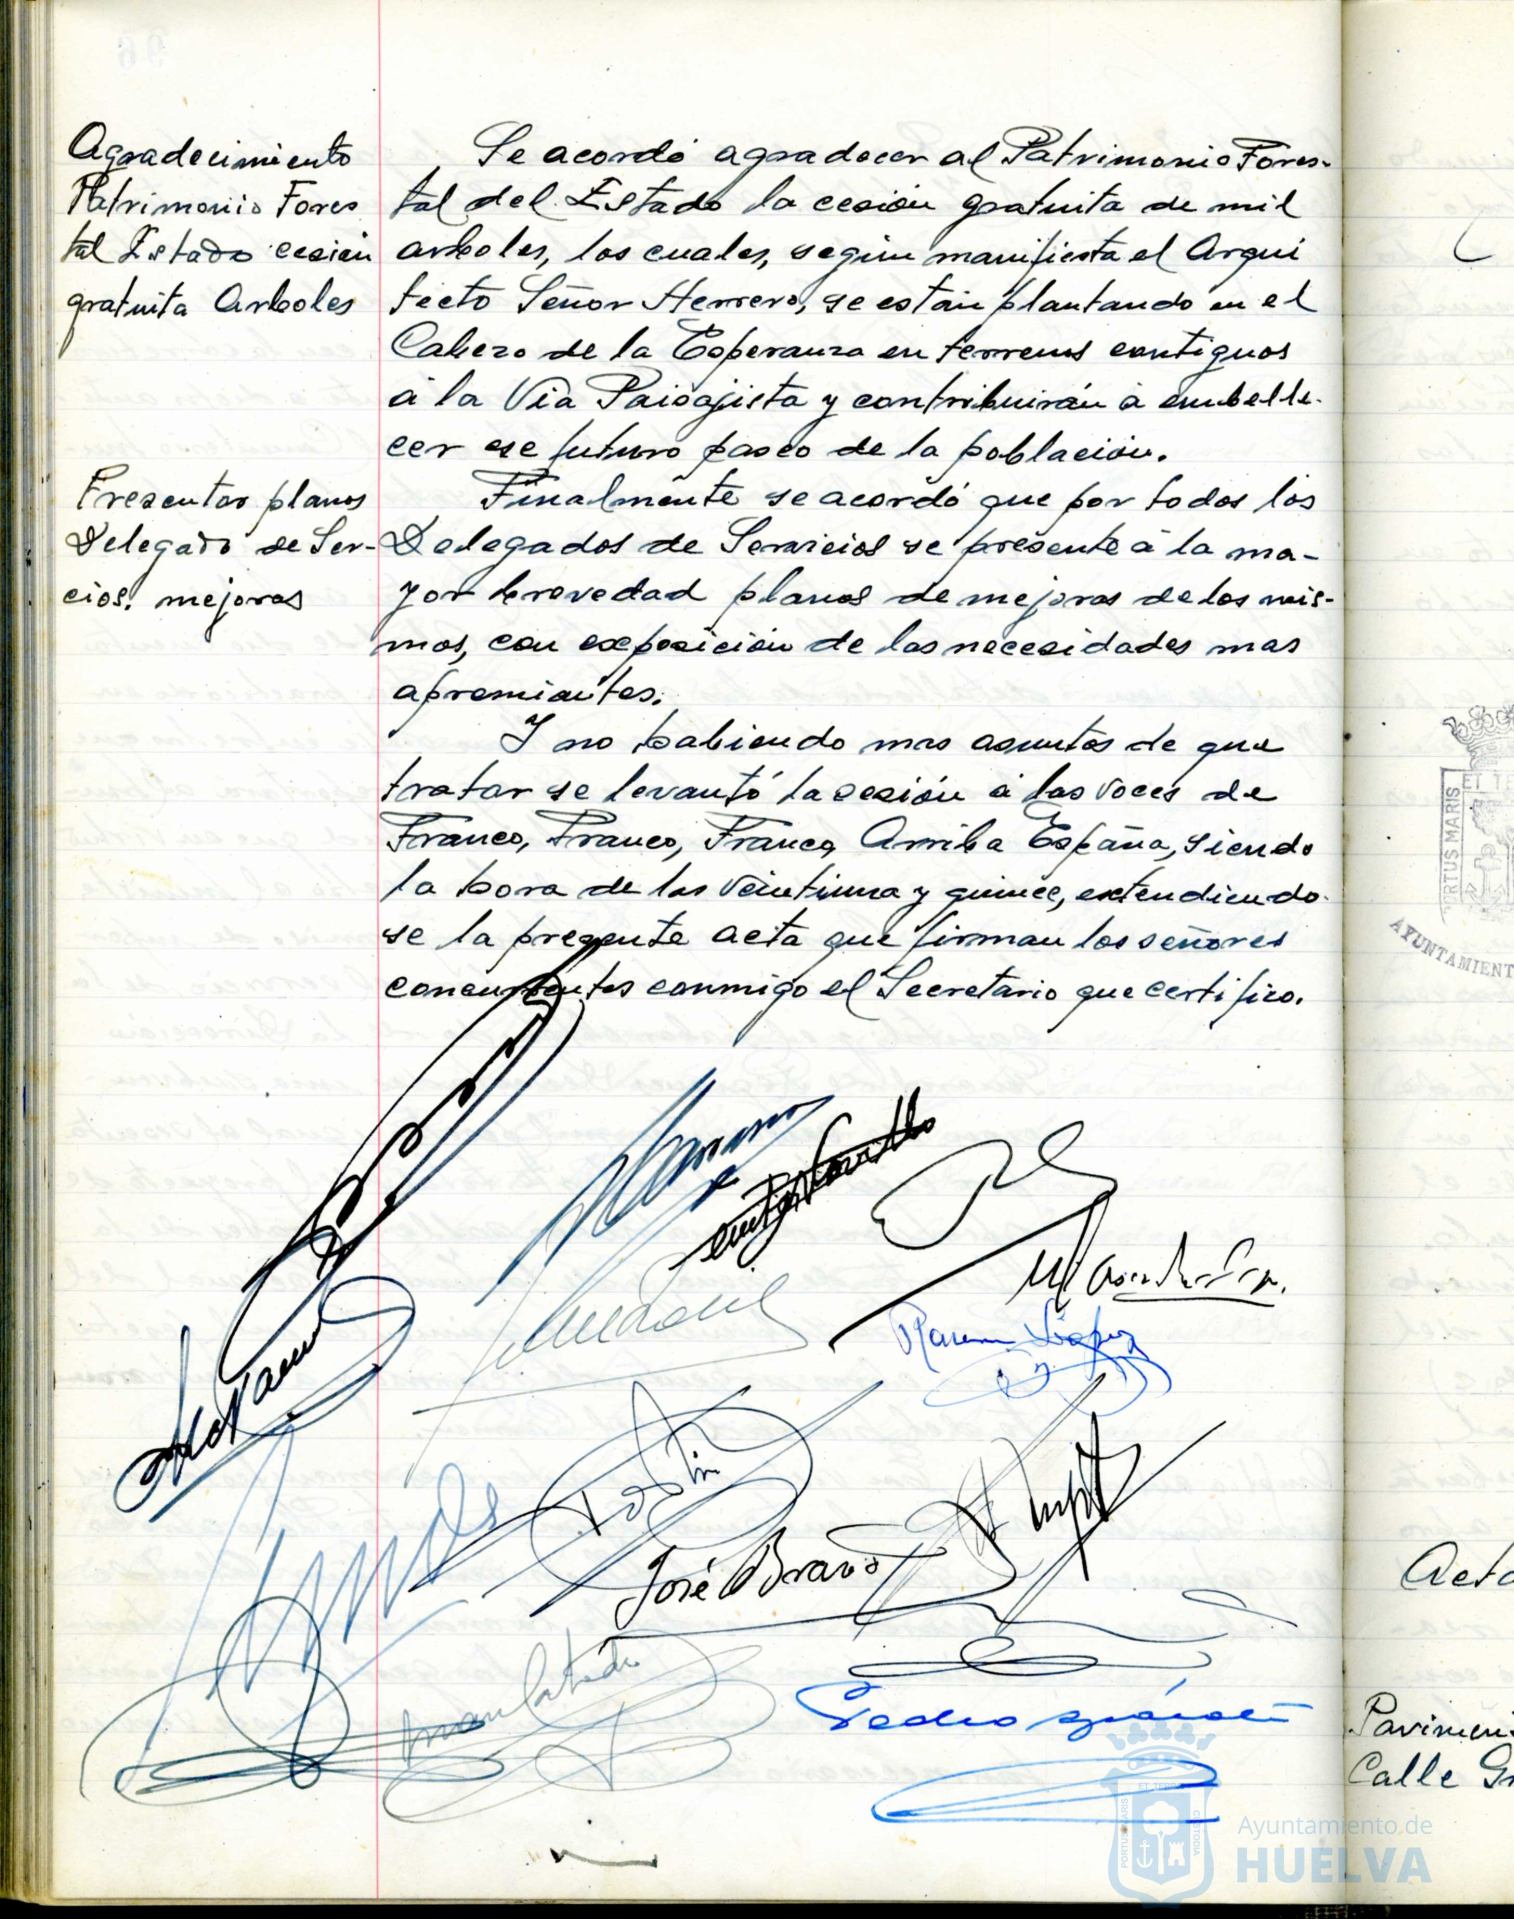 Agradecimiento
Patrimonio Fores
tal Estado cesión
gratuita Arboles
Se acordó agradecer al Patrimonio Fores-
tal del Estado la cesión gratuita de mil
arboles, los cuales, según manifiesta el Arqui
tecto Señor Herrero, se están plantando en el
Cabezo de la Esperanza en terrenos contiguos
á la Via Paisajista y contribuirán á embelle-
cer ese futuro paseo de la población.
Presentar planos
Delegado de Ser-
cios. mejoras
Finalmente se acordó que por todos los
Delegados de Servicios se presente á la ma-
yor brevedad planos de mejoras de los mis-
mos, con exposición de las necesidades mas
apremiantes.
Y no habiendo mas asuntos de que
tratar se levantó la sesión á las voces de
Franco, Franco, Franco, Arriba España, siendo
la hora de las veintiuna y quince, extendiendo-
se la presente acta que firman los señores
concurrentes conmigo el Secretario que certifico.
José Bravo
Pedro
PORTUS MARIS
AYUNTAMIENT
Acta
Pavimen
Calle Gr
EL TERRE
PORTUS MARIS
CUSTODIA
Ayuntamiento de
HUELVA